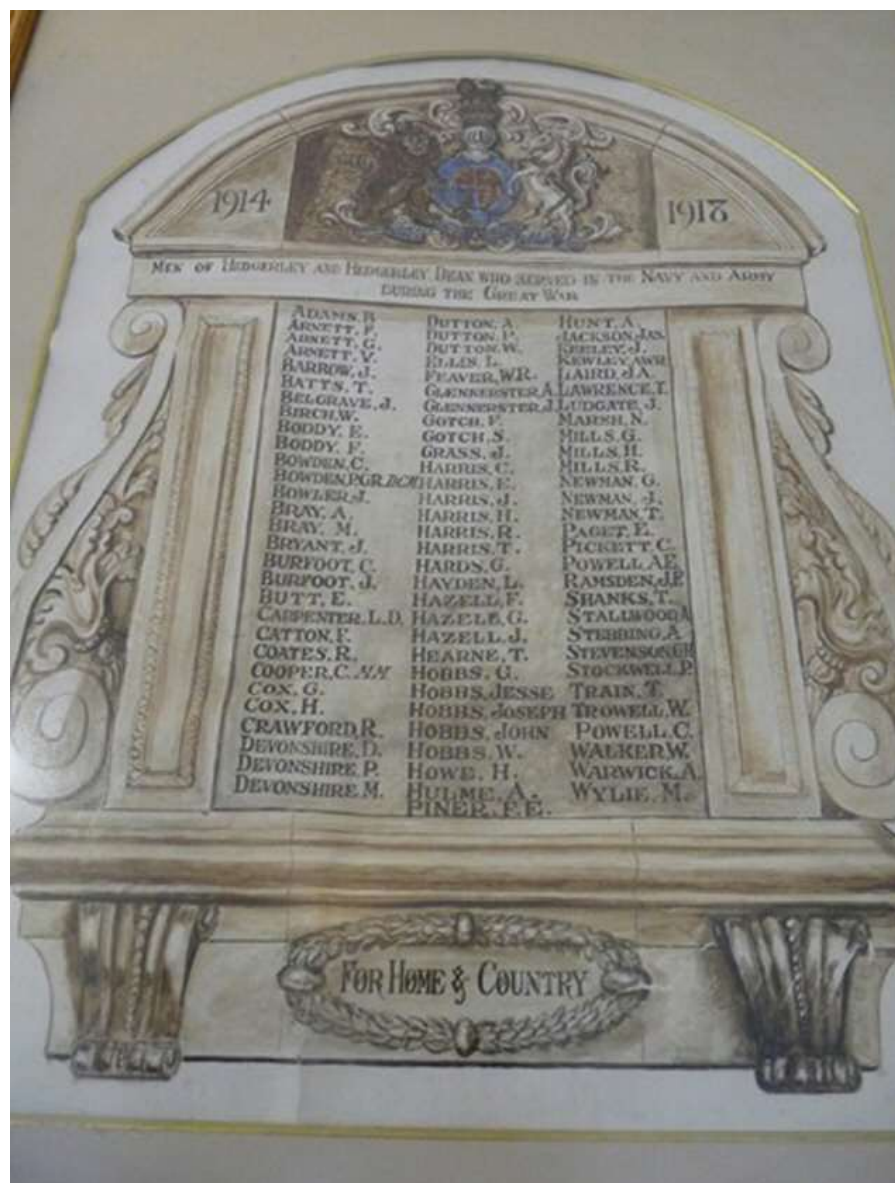 1914
1918
MEN OF HEDGERLEY AND HEDGERLEY DEAN WHO SERVED IN THE NAVY AND ARMY
DURING THE GREAT WAR
ADAMS, B.
ARNETT, F.
ARNETT, G.
ARNETT, V.
BARROW, J.
BATTS, T.
BELGRAVE, J.
BIRCH, W.
BODDY, E.
BODDY, F.
BOWDEN, C.
BOWDEN, P.G.R. D.C.M.
BOWLER, J.
BRAY, A.
BRAY, M.
BRYANT, J.
BURFOOT, C.
BURFOOT, J.
BUTT, E.
CARPENTER, L.D.
CATTON, F.
COATES, R.
COOPER, C.
COX, G.
COX, H.
CRAWFORD, R.
DEVONSHIRE, D.
DEVONSHIRE, P.
DEVONSHIRE, M.
DUTTON, A.
DUTTON, P.
DUTTON, W.
ELLIS, L.
FEAVER, W.R.
GLENNERSTER, A.
GLENNERSTER, J.
GOTCH, F.
GOTCH, S.
GRASS, J.
HARRIS, C.
HARRIS, E.
HARRIS, J.
HARRIS, H.
HARRIS, R.
HARRIS, T.
HARDS, G.
HAYDEN, L.
HAZELL, F.
HAZELL, G.
HAZELL, J.
HEARNE, T.
HOBBS, G.
HOBBS, JESSE
HOBBS, JOSEPH
HOBBS, JOHN
HOBBS, W.
HOWE, H.
HULME, A.
PINER, F.E.
HUNT, A.
JACKSON, JAS.
KEELEY, J.
KEWLEY, A.W.R.
LAIRD, J.A.
LAWRENCE, T.
LUDGATE, J.
MARSH, N.
MILLS, G.
MILLS, H.
MILLS, R.
NEWMAN, G.
NEWMAN, J.
NEWMAN, T.
PAGET, E.
PICKETT, C.
POWELL, A.E.
RAMSDEN, J.P.
SHANKS, T.
STALLWOOD, A.
STEBBING, A.
STEVENSON, G.H.
STOCKWELL, P.
TRAIN, T.
TROWELL, W.
POWELL, C.
WALKER, W.
WARWICK, A.
WYLIE, M.
FOR HOME & COUNTRY